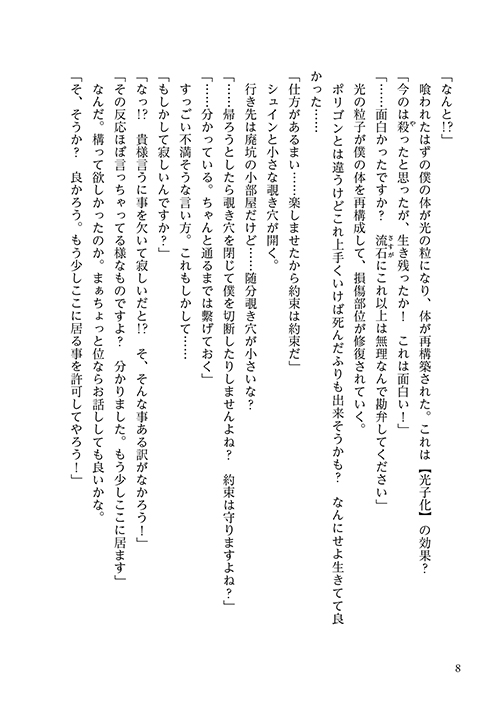 「なんと!?」
喰われたはずの僕の体が光の粒になり、体が再構築された。これは【光子化】の効果？
「今のは殺ったと思ったが、生き残ったか！　これは面白い！」
「……面白かったですか？　流石にこれ以上は無理なんで勘弁してください」
光の粒子が僕の体を再構成して、損傷部位が修復されていく。
ポリゴンとは違うけどこれ上手くいけば死んだふりも出来そうかも？　なんにせよ生きてて良
かった……
「仕方があるまい……楽しませたから約束は約束だ」
シュインと小さな覗き穴が開く。
行き先は廃坑の小部屋だけど……随分覗き穴が小さいな？
「……帰ろうとしたら覗き穴を閉じて僕を切断したりしませんよね？　約束は守りますよね？」
「……分かっている。ちゃんと通るまでは繋げておく」
すっごい不満そうな言い方。これもしかして……
「もしかして寂しいんですか？」
「なっ!?　貴様言うに事を欠いて寂しいだと!?　そ、そんな事ある訳がなかろう！」
「その反応ほぼ言っちゃってる様なものですよ？　分かりました。もう少しここに居ます」
なんだ。構って欲しかったのか。まぁちょっと位ならお話ししても良いかな。
「そ、そうか？　良かろう。もう少しここに居る事を許可してやろう！」
8